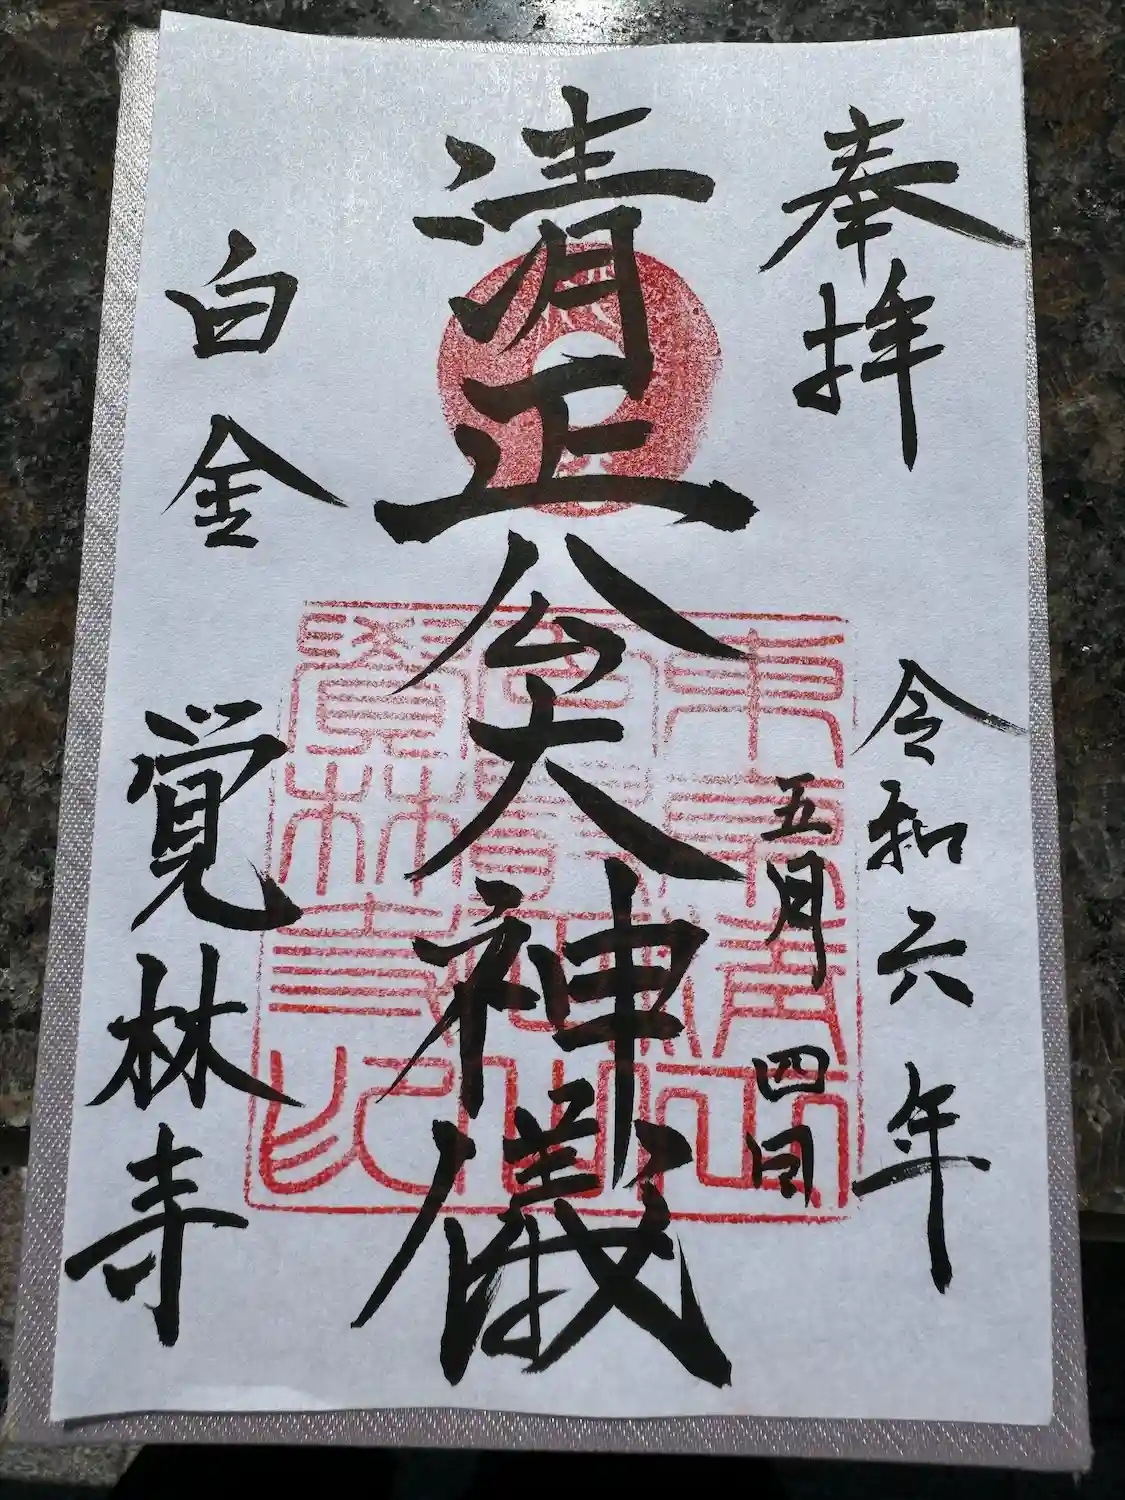 奉拝
令和六年
五月四日
清正公大神儀
白金
覚林寺